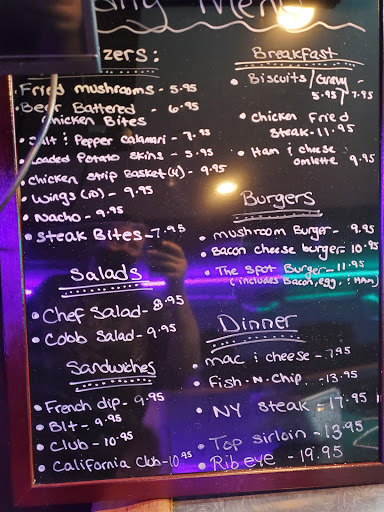 Menu
zers:
• Fried mushrooms - 5.95
• Beer Battered - 6.95
chicken Bites
• Salt & Pepper calamari - 7.95
• Loaded Potato skins - 5.95
• Chicken strip Basket(4) - 9.95
• wings (10) - 9.95
• Nacho - 9.95
• Steak Bites - 7.95
Salads
• Chef Salad - 8.95
• Cobb Salad - 9.95
Sandwiches
• French dip - 9.95
• Blt - 9.95
• Club - 10.95
• California Club - 10.95
Breakfast
• Biscuits / Gravy -
5.95 / 7.95
• Chicken Fried
Steak - 11.95
• Ham & cheese
omlette 9.95
Burgers
• mushroom Burger - 9.95
• Bacon cheese burger - 10.95
• The Spot Burger - 11.95
(includes Bacon, egg, & Ham)
Dinner
• mac & cheese - 7.95
• Fish-N-Chip - 13.95
• NY steak - 17.95
• Top sirloin - 13.95
• Rib eye - 19.95